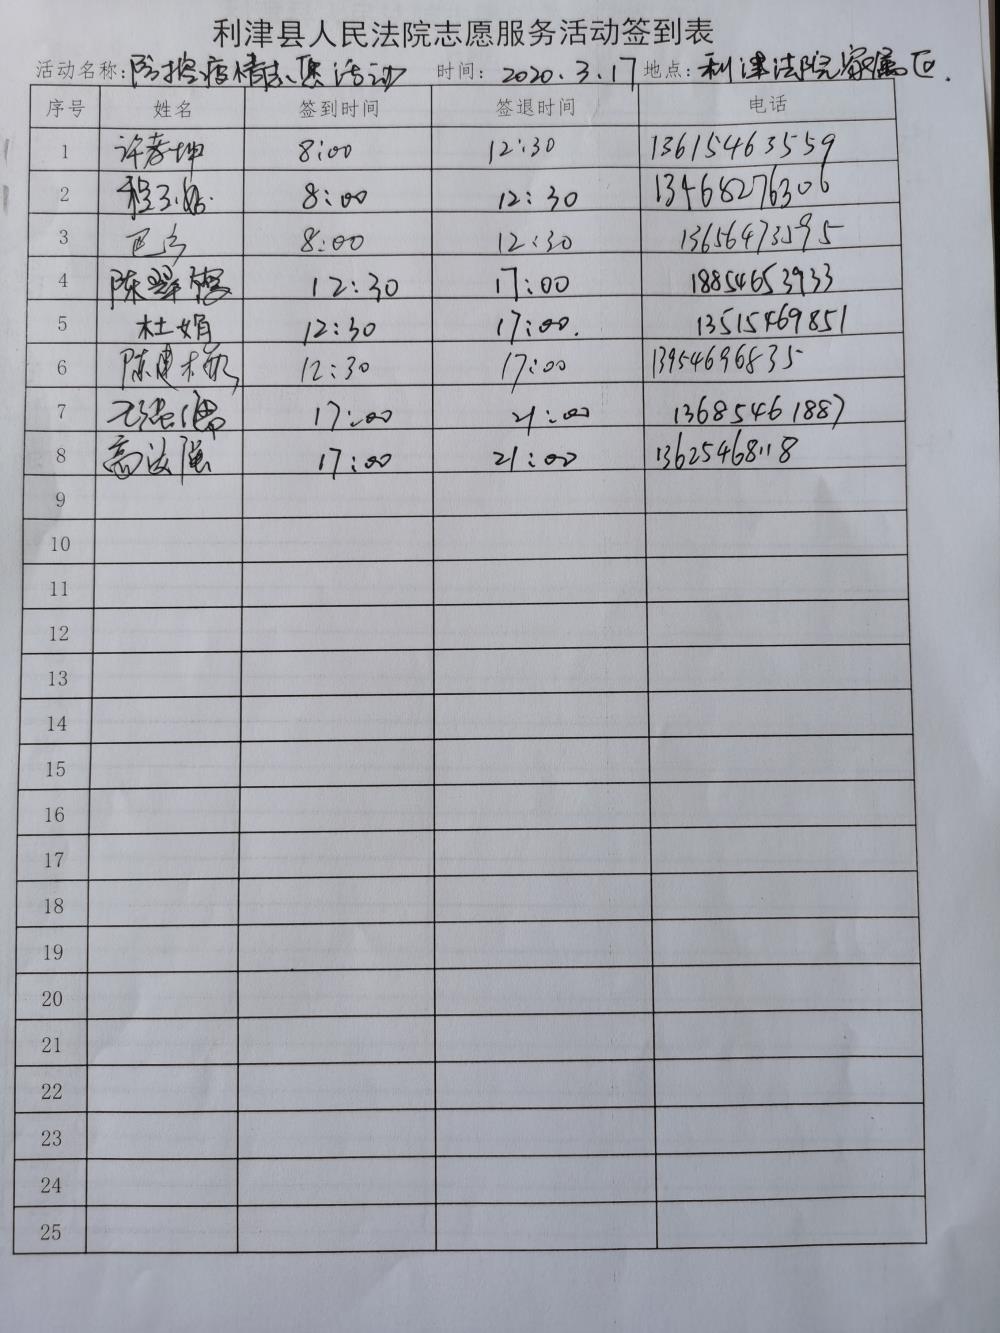 利津县人民法院志愿服务活动签到表
活动名称:防控疫情志愿活动 时间: 2020.3.17 地点: 利津法院家属区.
序号 姓名 签到时间 签退时间 电话
1 许孝坤 8:00 12:30 13615463559
2 8:00 12:30 13468276306
3 8:00 12:30 13656473595
4 陈翠 12:30 17:00 18854653933
5 杜娟 12:30 17:00. 13515469851
6 陈建 12:30 17:00 13954696835
7 17:00 21:00 13685461887
8 高法强 17:00 21:00 13625468118
9
10
11
12
13
14
15
16
17
18
19
20
21
22
23
24
25